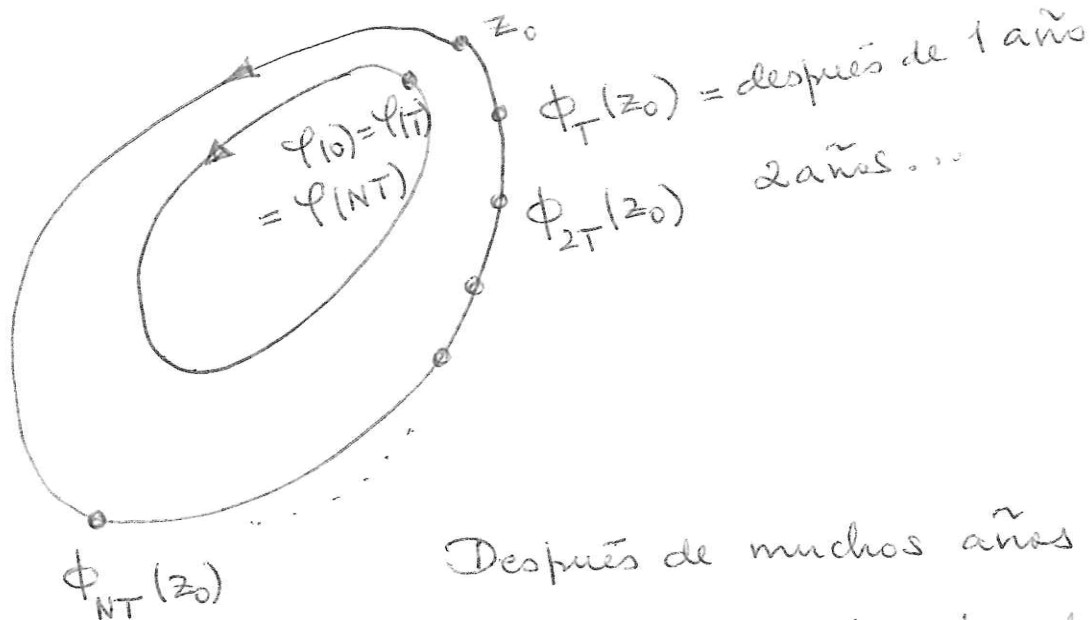 z₀
ϕ_T(z₀) = después de 1 año
φ(0) = φ(T)
= φ(NT)
ϕ_2T(z₀) 2 años...
ϕ_NT(z₀)
Después de muchos años